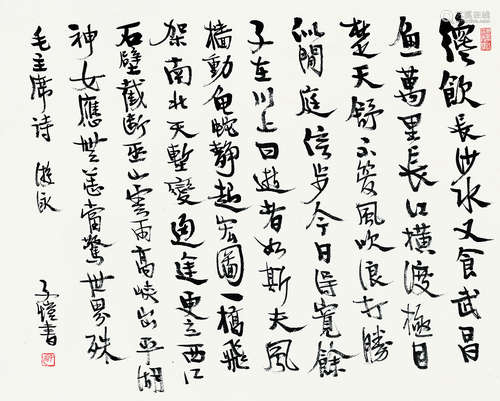 纔飲長沙水又食武昌
魚萬里長江橫渡極目
楚天舒不管風吹浪打勝
似閒庭信步今日得寬餘
子在川上曰逝者如斯夫風
檣動龜蛇靜起宏圖一橋飛
架南北天塹變通途更立西江
石壁截斷巫山雲雨高峽出平湖
神女應無恙當驚世界殊
毛主席詩 游泳
子愷書